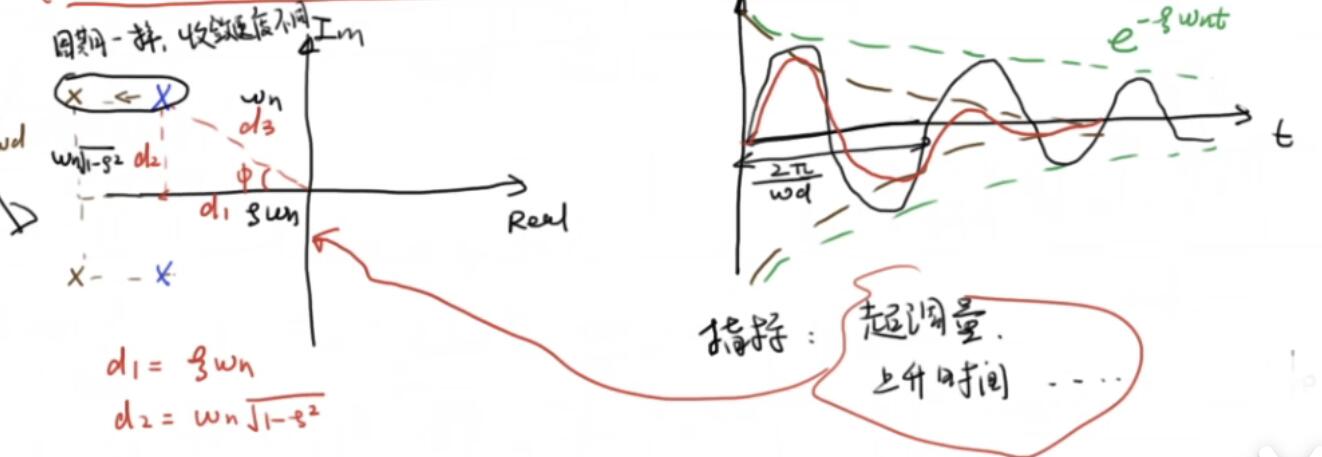 周期一样，收敛速度不同
Im
ωn
d3
ωd
ωn√1-ξ²
d2
φ
d1
ξωn
Real
d1 = ξωn
d2 = ωn√1-ξ²
e^-ξωnt
t
2π/ωd
指标：超调量.
上升时间 ......